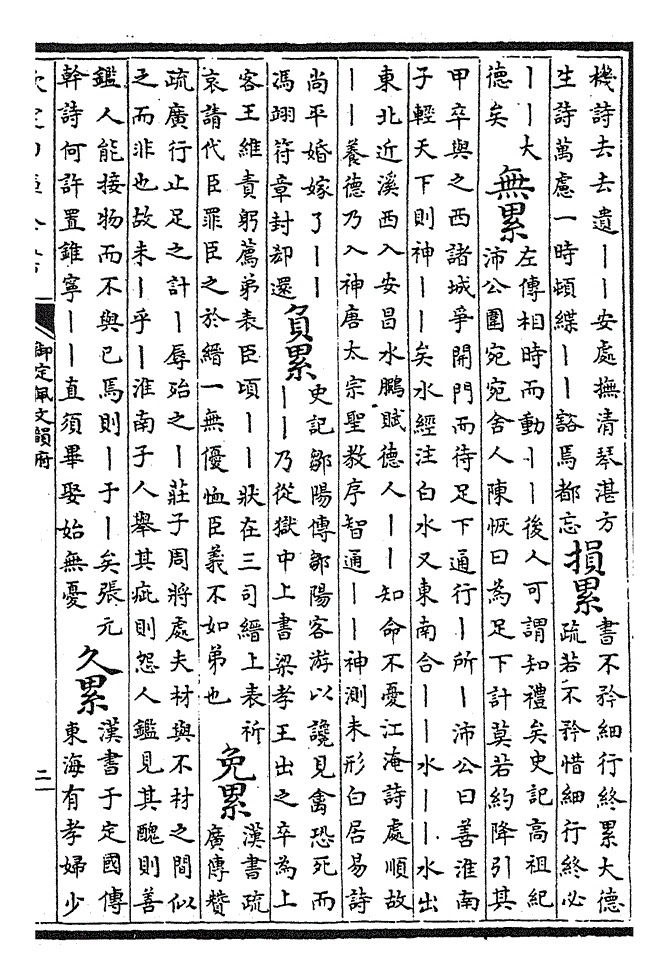 機詩去去遺丨丨安處撫清琴湛方
生詩萬慮一時頓緤丨丨豁焉都忘
損累
書不矜細行終累大德
疏若不矜惜細行終必
丨丨大
德矣
無累
左傳相時而動丨丨後人可謂知禮矣史記高祖紀
沛公圍宛宛舍人陳恢曰為足下計莫若約降引其
甲卒與之西諸城爭開門而待足下通行丨所丨沛公曰善淮南
子輕天下則神丨丨矣水經注白水又東南合丨丨水丨丨水出
東北近溪西入安昌水鵬賦德人丨丨知命不憂江淹詩處順故
丨丨養德乃入神唐太宗聖教序智通丨丨神測未形白居易詩
尚平婚嫁了丨丨
馮翊符章封却還
負累
史記鄒陽傳鄒陽客游以讒見禽恐死而
丨丨乃從獄中上書梁孝王出之卒為上
客王維責躬薦弟表臣頃丨丨丨狀在三司縉上表祈
哀請代臣罪臣之於縉一無優恤臣義不如弟也
免累
漢書疏
廣傳贊
疏廣行止足之計丨辱殆之丨莊子周將處夫材與不材之間似
之而非也故未丨乎丨淮南子人舉其疵則怨人鑑見其醜則善
鑑人能接物而不與已焉則丨于丨矣張元
幹詩何許置錐寧丨丨直須畢娶始無憂
久累
漢書于定國傳
東海有孝婦少
御定佩文韻府
二